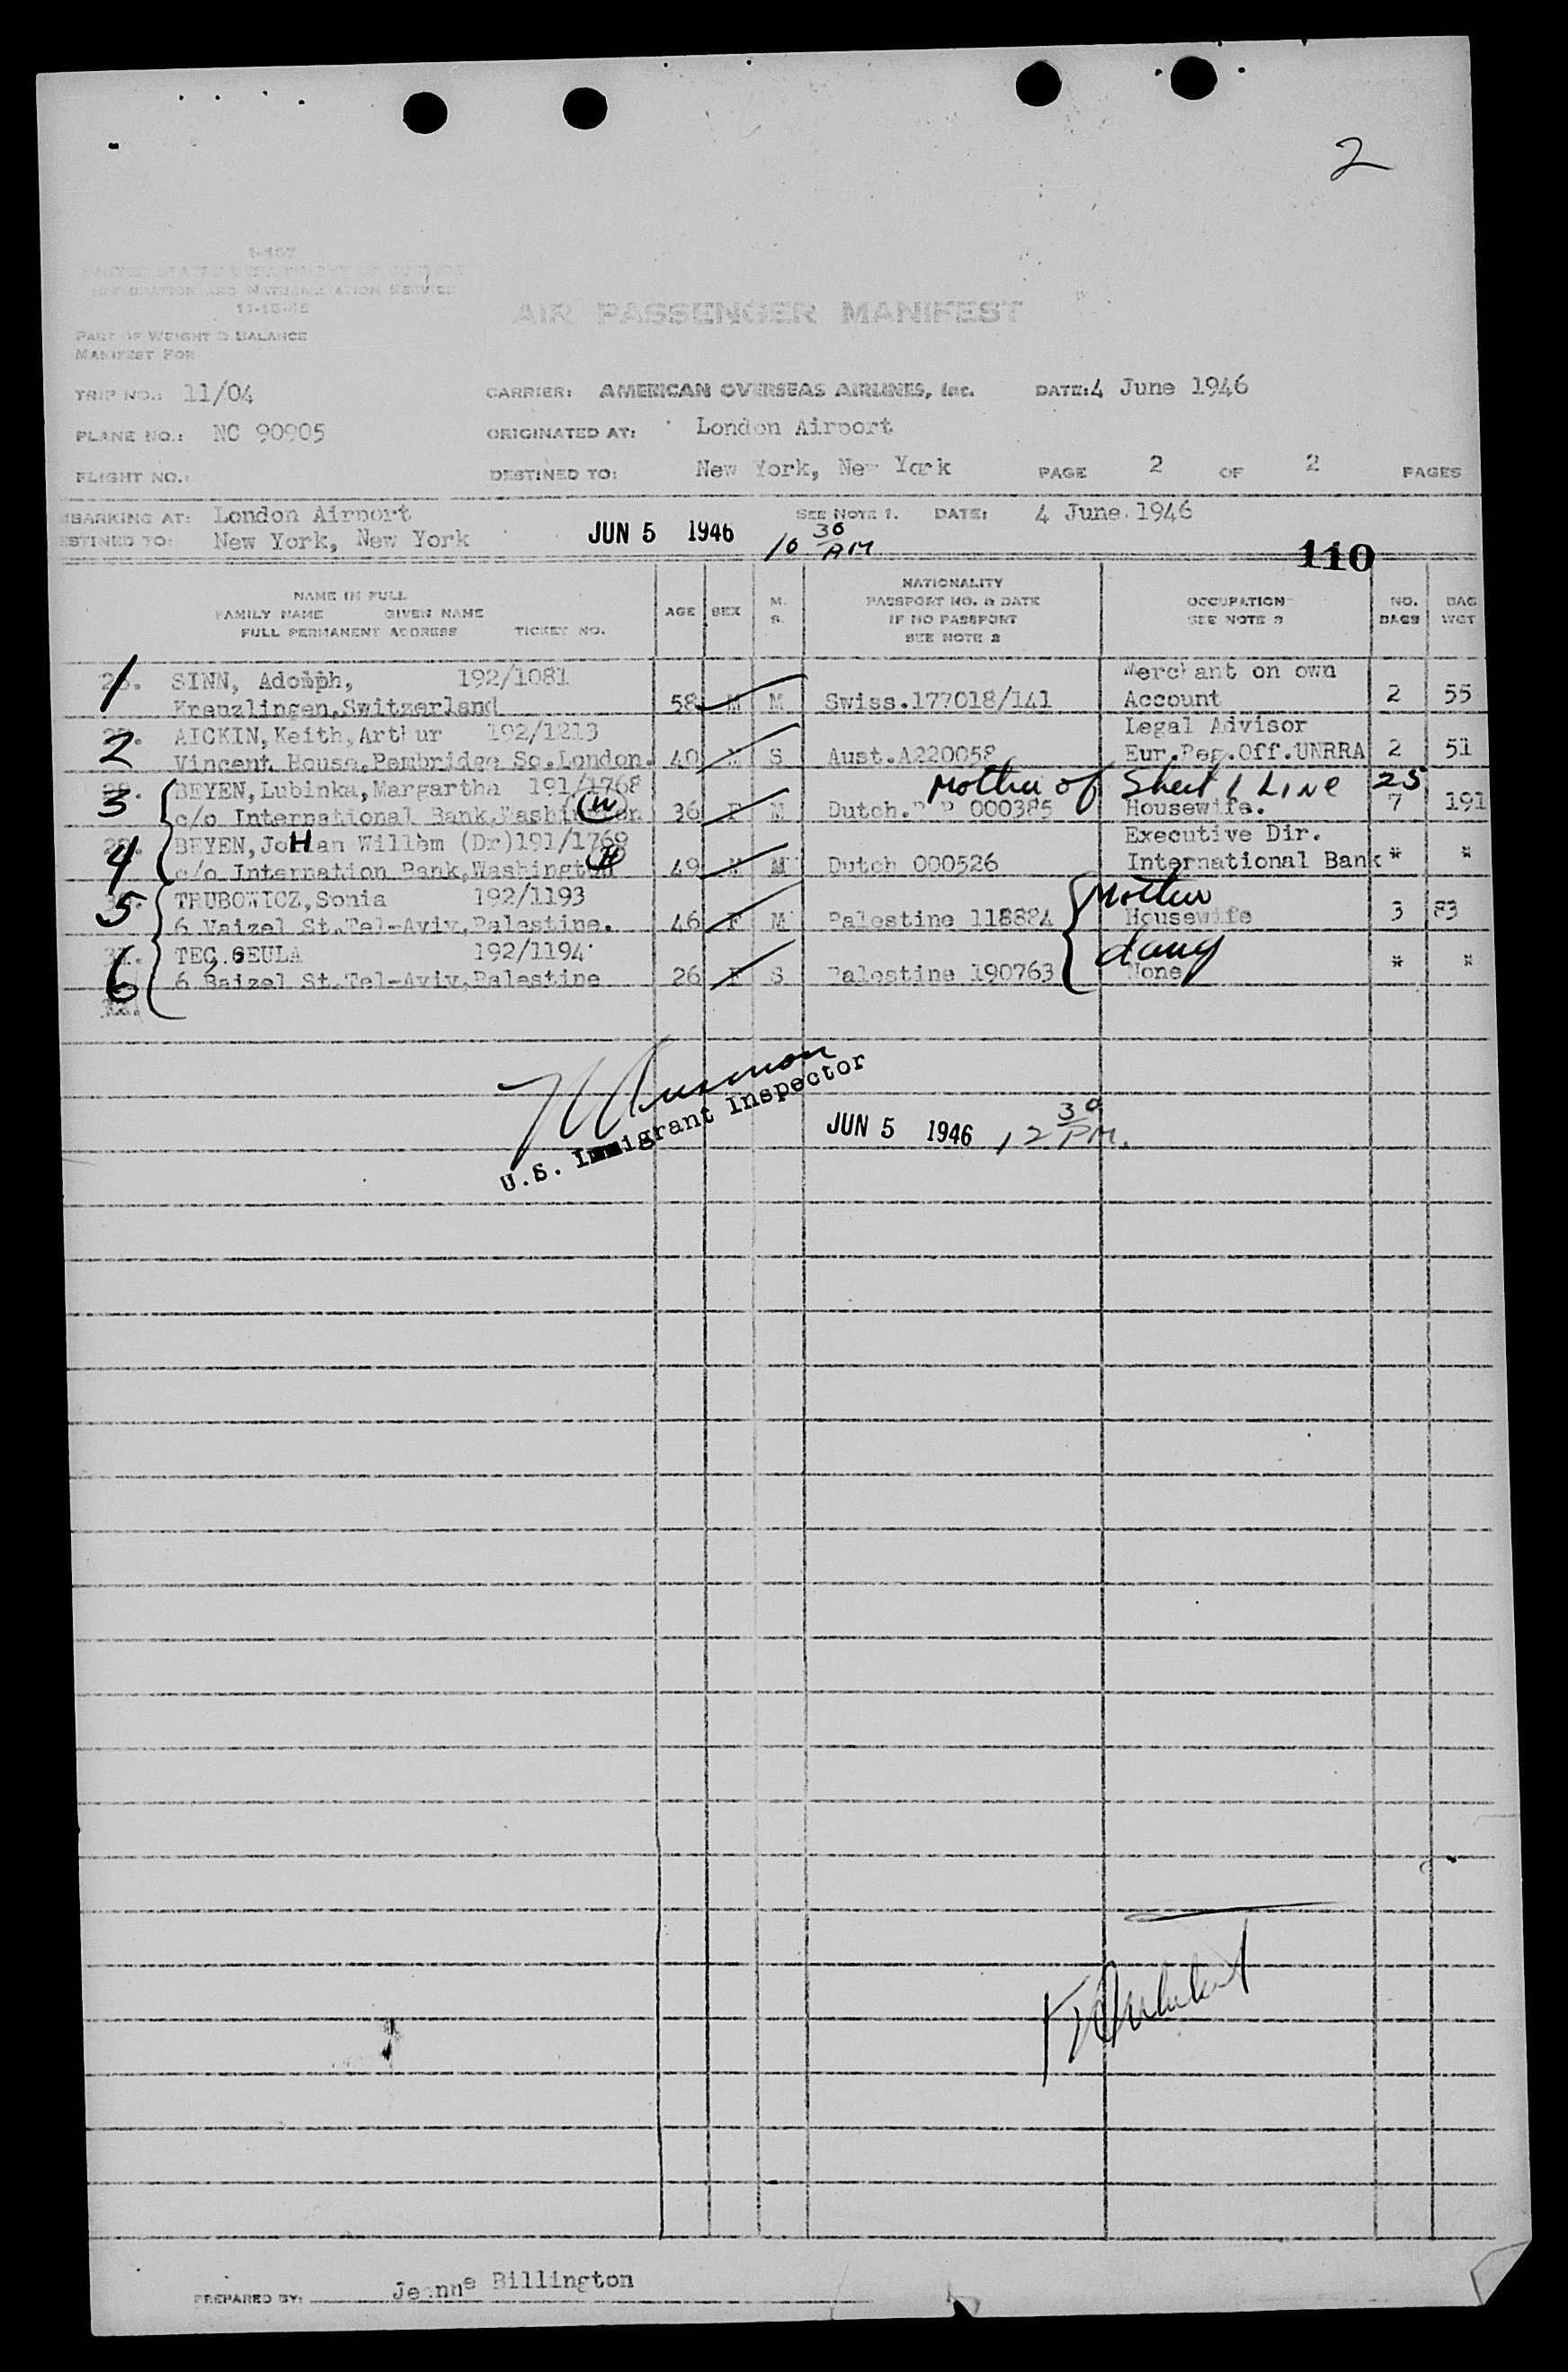 2
1-467
UNITED STATES DEPARTMENT OF JUSTICE
IMMIGRATION AND NATURALIZATION SERVICE
11-15-45
AIR PASSENGER MANIFEST
PART OF WEIGHT & BALANCE
MANIFEST FOR
TRIP NO.: 11/04 CARRIER: AMERICAN OVERSEAS AIRLINES, Inc. DATE: 4 June 1946
PLANE NO.: NC 90905 ORIGINATED AT: London Airport
FLIGHT NO.: DESTINED TO: New York, New York PAGE 2 OF 2 PAGES
MBARKING AT: London Airport SEE NOTE 1. DATE: 4 June 1946
ESTINED TO: New York, New York JUN 5 1946 10 30 AM
110
NAME IN FULL
FAMILY NAME GIVEN NAME
FULL PERMANENT ADDRESS TICKET NO.
AGE SEX M. S.
NATIONALITY
PASSPORT NO. & DATE
IF NO PASSPORT
SEE NOTE 2
OCCUPATION
SEE NOTE 3
NO. BAGS
BAG WGT
1 SINN, Adolph, 192/1081 Merchant on own
Kreuzlingen, Switzerland 58 M M Swiss.177018/141 Account 2 55
2 AICKIN, Keith, Arthur 192/1213 Legal Advisor
Vincent House, Pembridge Sq. London. 40 M S Aust.A220058 Eur.Reg.Off.UNRRA 2 51
Mother of Sheet 1 LINE 25
3 BEYEN, Lubinka, Margartha 191/1768
c/o International Bank, Washington (W) 36 F M Dutch. 000385 Housewife. 7 191
4 BEYEN, JoHan Willem (Dr) 191/1769 Executive Dir.
c/o Internation Bank, Washington (H) 49 M M Dutch 000526 International Bank * *
5 TRUBOWICZ, Sonia 192/1193 Mother
6 Vaizel St. Tel-Aviv, Palestine. 46 F M Palestine 118884 Housewife 3 83
6 TEC, GEULA 192/1194 daug
6 Baizel St. Tel-Aviv, Palestine 26 F S Palestine 190763 None * *
32.
U.S. Immigrant Inspector
JUN 5 1946 12 30 PM.
PREPARED BY: Jeanne Billington